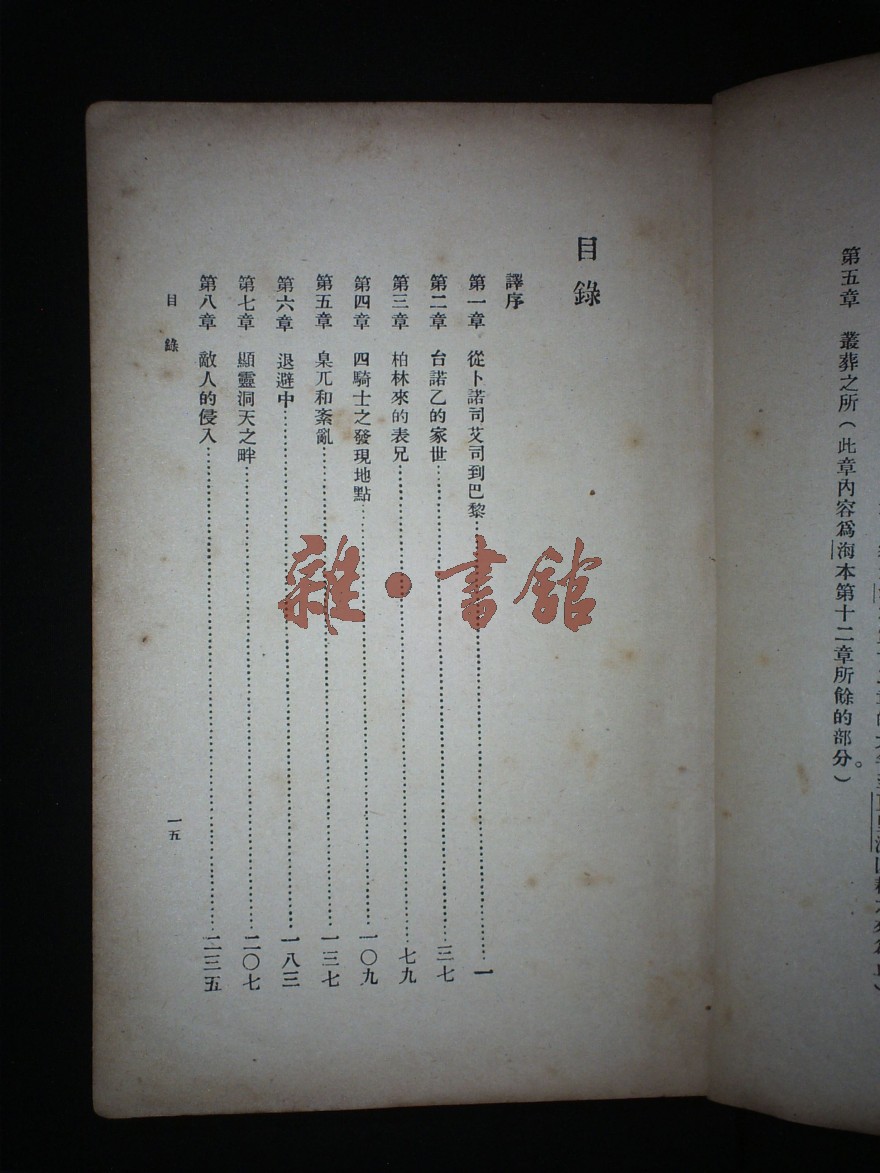 第五章 叢葬之所（此章內容爲海本第十二章所餘的部分。）
目錄
譯序
第一章 從卜諾司艾司到巴黎……一
第二章 台諾乙的家世……三七
第三章 柏林來的表兄……七九
第四章 四騎士之發現地點……一〇九
第五章 臬兀和紊亂……一三七
第六章 退避中……一八三
第七章 顯靈洞天之畔……二〇七
第八章 敵人的侵入……二三五
目錄 一五
雜·書館